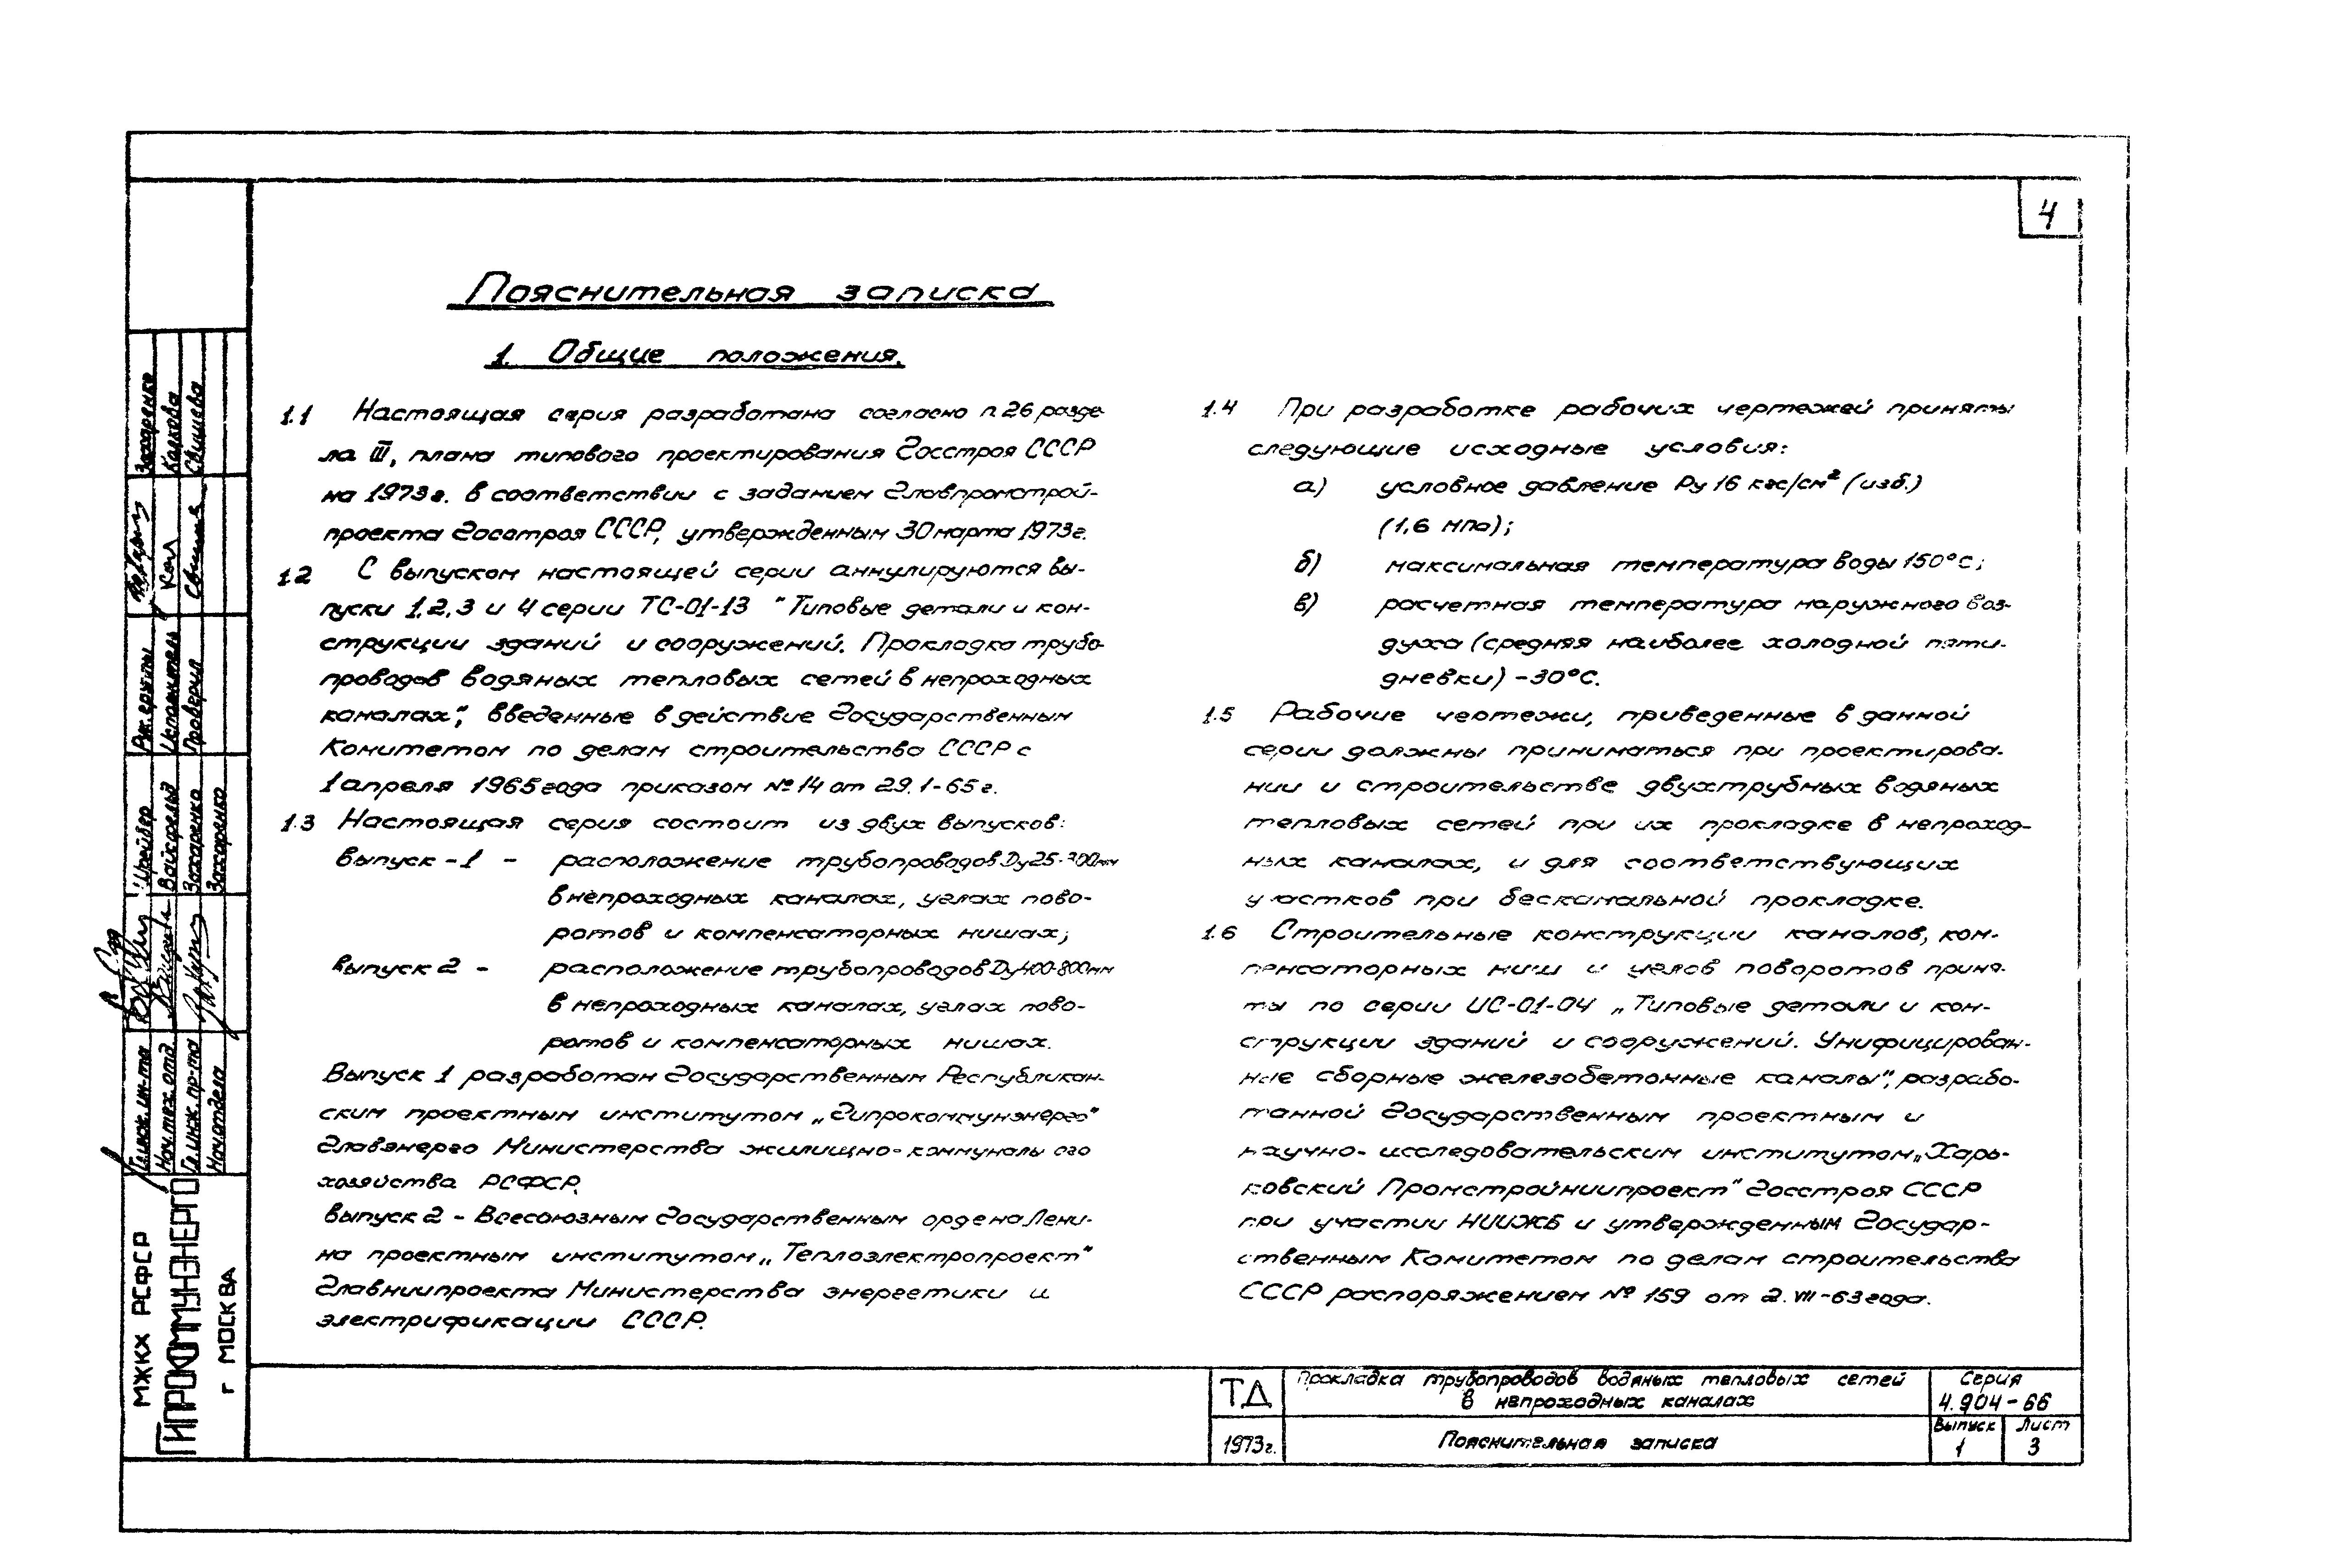 4
Пояснительная записка
1. Общие положения.
1.1 Настоящая серия разработана согласно п.26 разде-
ла III, плана типового проектирования Госстроя СССР
на 1973г. в соответствии с заданием Главпромстрой-
проекта Госстроя СССР, утвержденным 30 марта 1973г.
1.2 С выпуском настоящей серии аннулируются вы-
пуски 1,2,3 и 4 серии ТС-01-13 "Типовые детали и кон-
струкции зданий и сооружений. Прокладка трубо-
проводов водяных тепловых сетей в непроходных
каналах", введенные в действие Государственным
Комитетом по делам строительства СССР с
1 апреля 1965 года приказом № 14 от 29.1-65г.
1.3 Настоящая серия состоит из двух выпусков:
выпуск - 1 - расположение трубопроводов Ду 25-300мм
в непроходных каналах, углах пово-
ротов и компенсаторных нишах;
выпуск 2 - расположение трубопроводов Ду400-800мм
в непроходных каналах, углах пово-
ротов и компенсаторных нишах.
Выпуск 1 разработан Государственным Республикан-
ским проектным институтом „Гипрокоммунэнерго"
Главэнерго Министерства жилищно-коммуналь ого
хозяйства РСФСР.
выпуск 2 - Всесоюзным Государственным ордена Лени-
на проектным институтом „Теплоэлектропроект"
Главниипроекта Министерства энергетики и
электрификации СССР.
1.4 При разработке рабочих чертежей приняты
следующие исходные условия:
а) условное давление Ру 16 кгс/см² (изб.)
(1,6 мпа);
б) максимальная температура воды 150°С;
в) расчетная температура наружного воз-
духа (средняя наиболее холодной пяти-
дневки) -30°С.
1.5 Рабочие чертежи, приведенные в данной
серии должны приниматься при проектирова-
нии и строительстве двухтрубных водяных
тепловых сетей при их прокладке в непроход-
ных каналах, и для соответствующих
участков при бесканальной прокладке.
1.6 Строительные конструкции каналов, ком-
пенсаторных ниш и углов поворотов приня-
ты по серии ИС-01-04 „Типовые детали и кон-
струкции зданий и сооружений. Унифицирован-
ные сборные железобетонные каналы", разрабо-
танной Государственным проектным и
научно-исследовательским институтом „Харь-
ковский Промстройниипроект" Госстроя СССР
при участии НИИЖБ и утвержденным Государ-
ственным Комитетом по делам строительства
СССР распоряжением № 159 от 2.VIII-63 года.
ТД
Прокладка трубопроводов водяных тепловых сетей
в непроходных каналах
Серия
4.904-66
1973г.
Пояснительная записка
Выпуск
1
Лист
3
МЖКХ РСФСР
ГИПРОКОММУНЭНЕРГО
г МОСКВА
Гл.инж.ин-та Шрейбер Рук.группы Захаренко
Нач.тех.отд. Вайсфельд Исполнитель
Гл.инж.пр-та Захаренко Проверил
Нач.отдела Захаренко